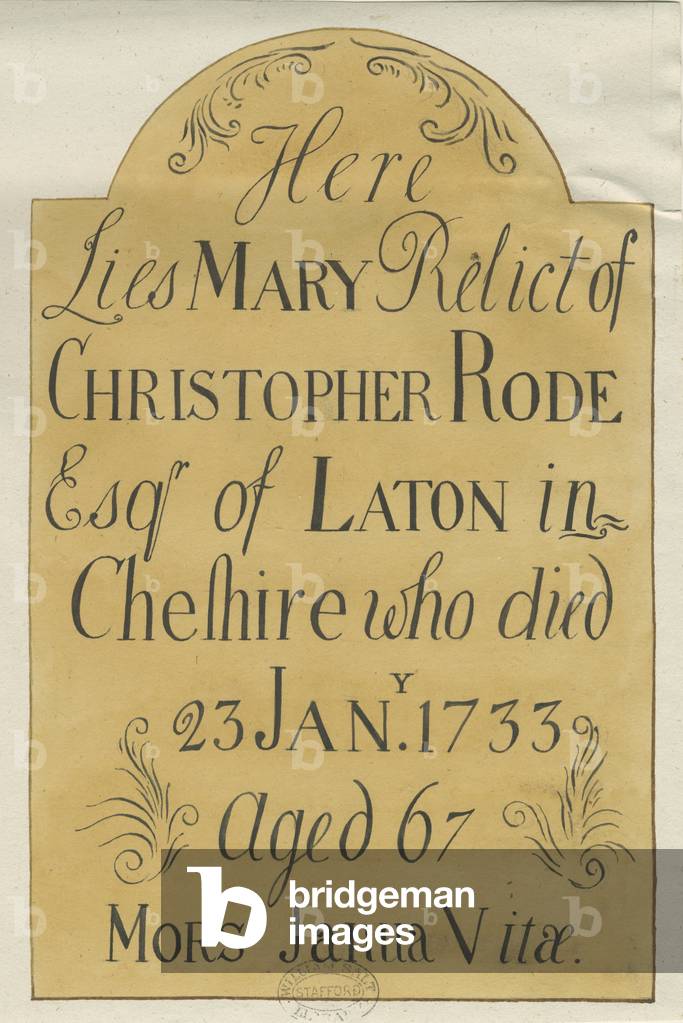 Here
Lies MARY Relict of
CHRISTOPHER RODE
Esqr of LATON in
Cheſhire who died
23 JANY. 1733
Aged 67
MORS Janua Vitæ.
b bridgeman
images
WILLIAM SALT
STAFFORD